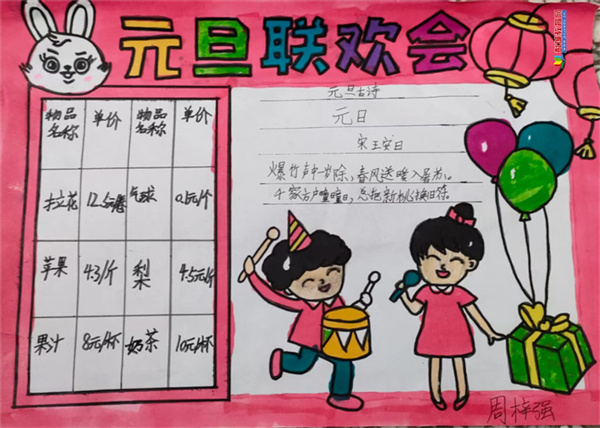 元旦联欢会
物品名称 单价 物品名称 单价
拉花 气球
苹果 4.3/斤 梨 4.5元/斤
果汁 8元/杯 奶茶 10元/杯
元旦古诗
元日
宋 王安日
爆竹声中一岁除，春风送暖入屠苏。
千家万户曈曈日，总把新桃换旧符。
周梓强